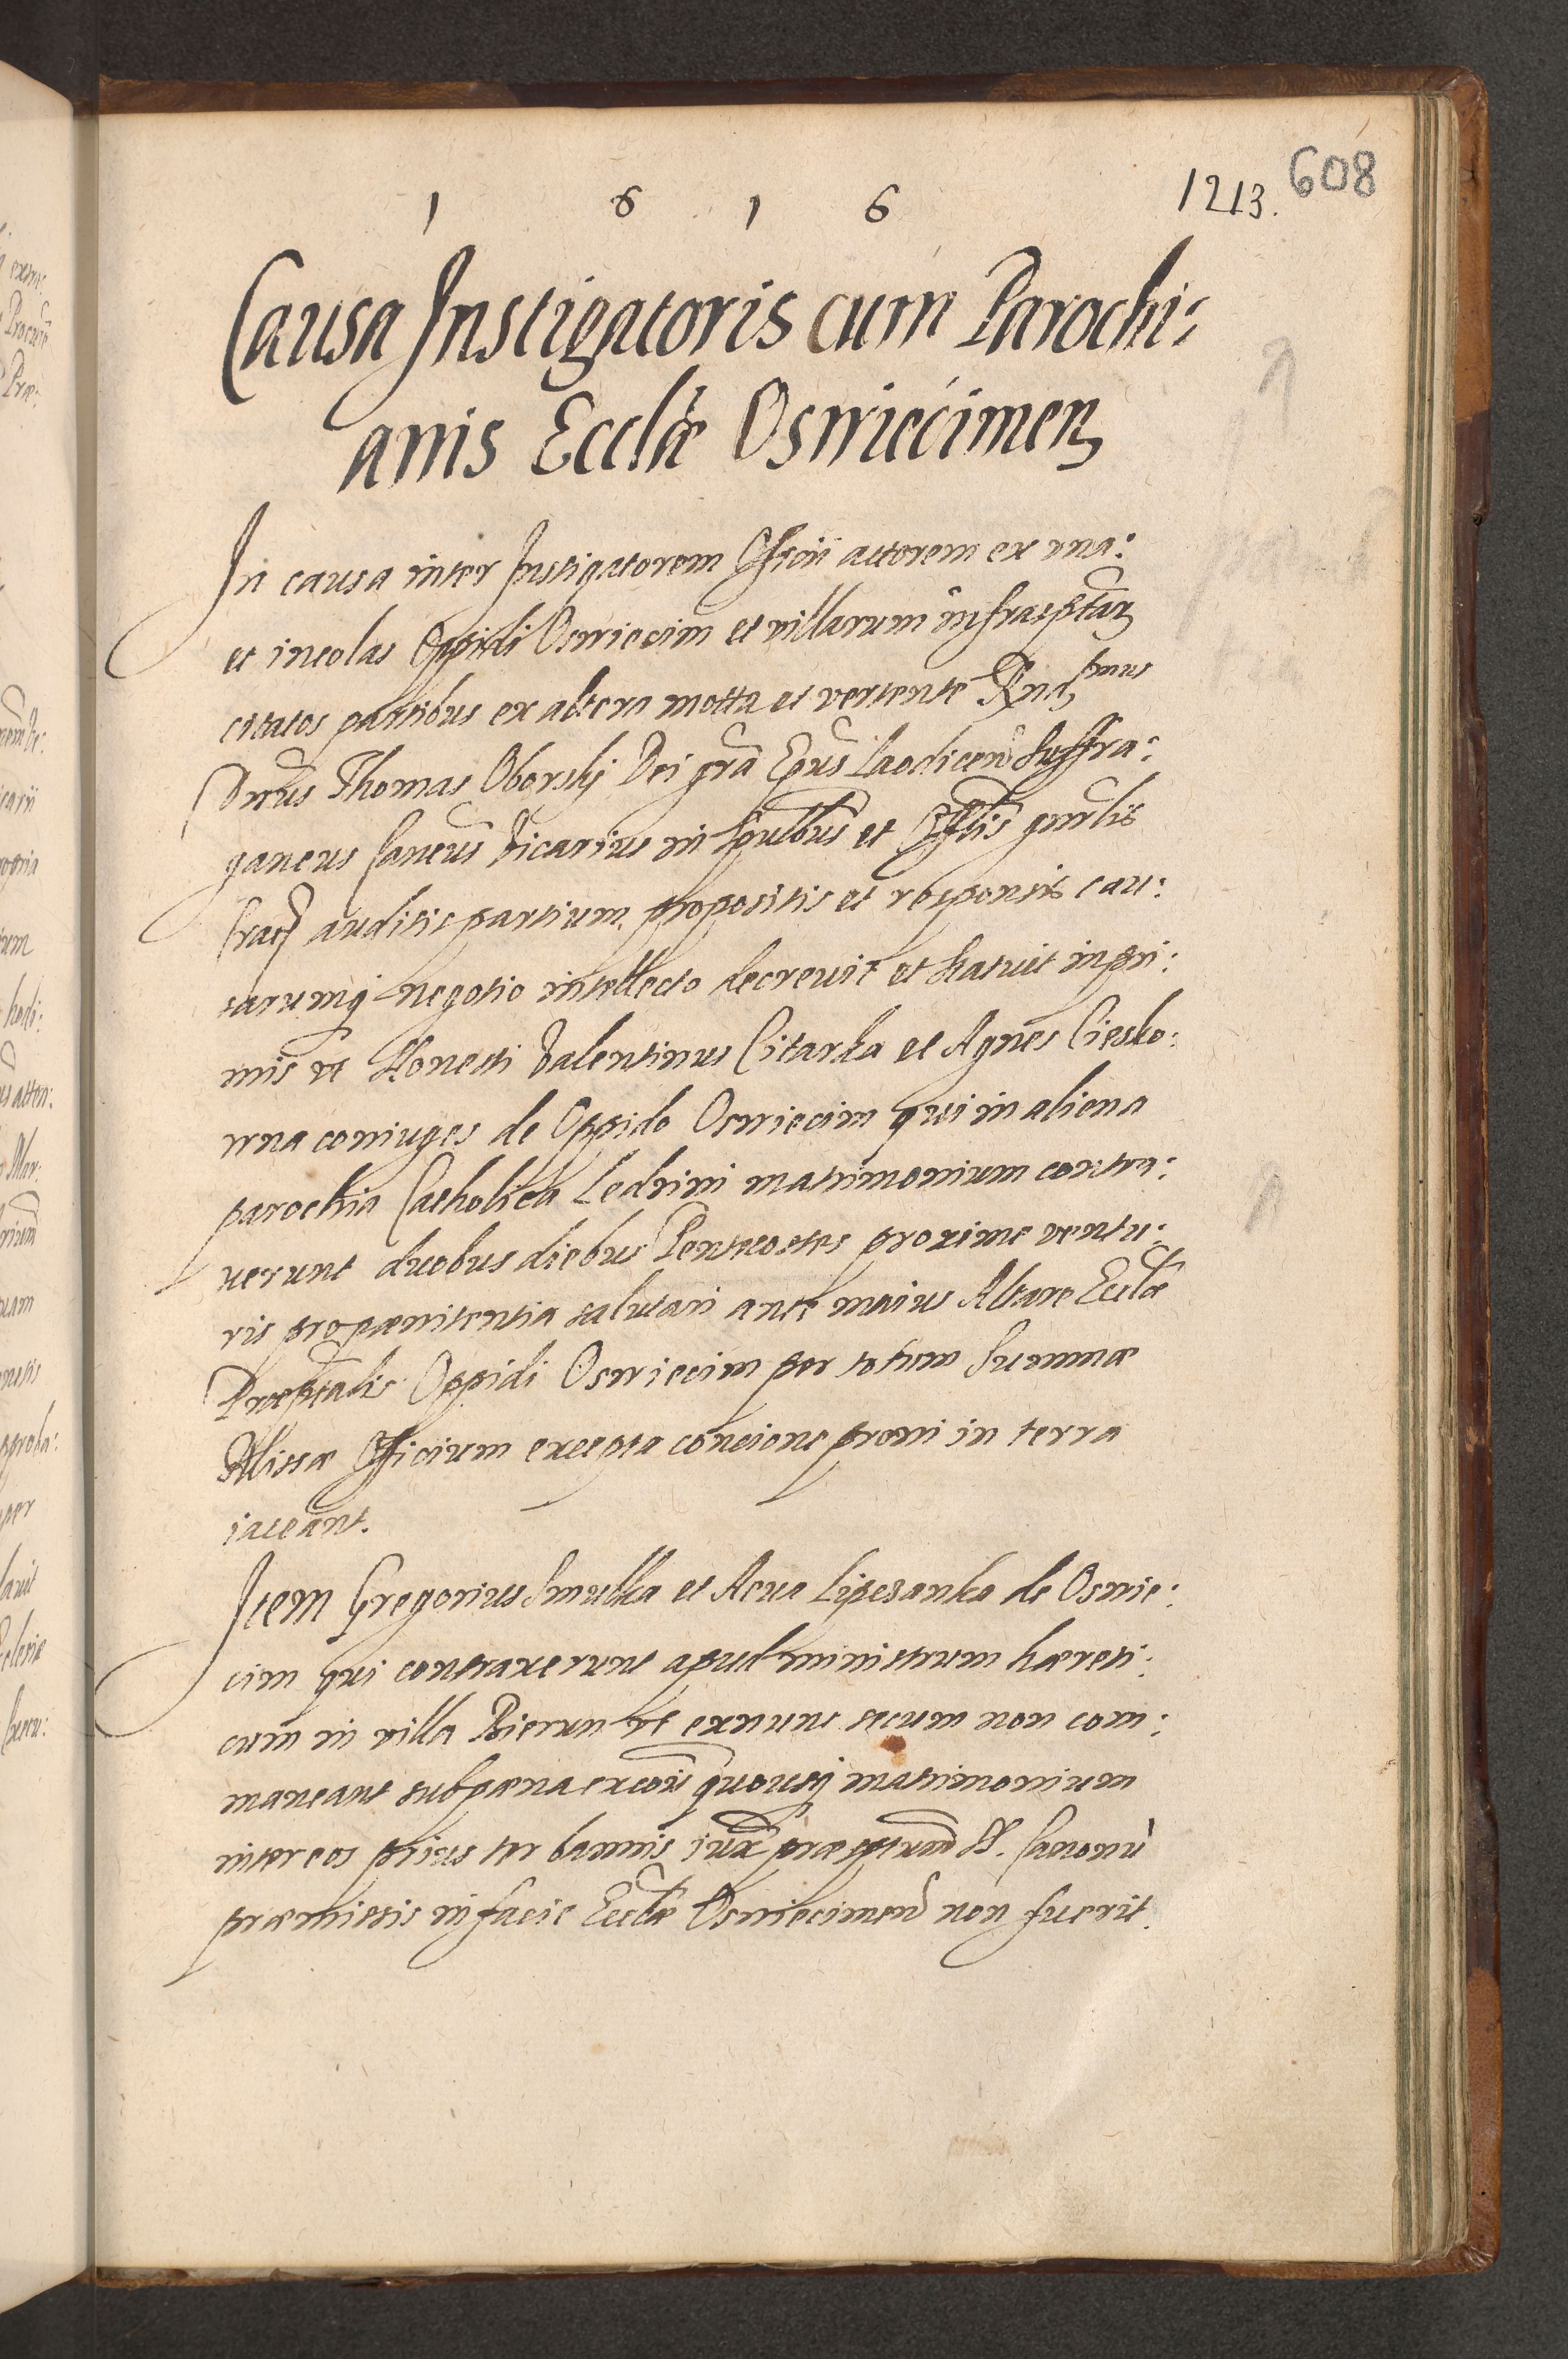 1 6 1 6
1213. 608
Causa Instigatoris cum Parochi:
anis Ecclæ Oswiecimen
In causa inter Instigatorem Officii actorem ex una:
et incolas Oppidi Oswiecim et villarum infrasptar
citatos partibus ex altera motta et vertente Rndssimus
Dnus Thomas Oborskj Dei gra Epus Laodicen Suffra:
ganeus Vicarius in spualibus et Offlis gnrlis
Crac auditis partium propositis et responsis cau:
sarumq negotio intellecto decrevit et statuit inpri:
mis vt Honesti Valentinus Citarka et Agnes Ciesko:
wna coniuges de Oppido Oswiecim qui in aliena
parochia Catholica Ledzini matrimonium contra:
xerunt duobus diebus Pentecostes proxime ventu:
ris pro pænitentia salutari ante maius Altare Ecclæ
Oppidi Oswiecim per totum Summæ
Missæ Officium excepta concione proni in terra
iaceant.
Item Gregorius Smulka et Lipczanka de Oswie:
cim qui contraxerunt apud ministrum hæreti:
cum in villa Bierun vt exnunc secum non com:
maneant subpæna excois quousq matrimonium
inter eos prius ter bannis iuxa SS. Canonu
præmissis in facie Ecclæ Oswiecimen non fuerit